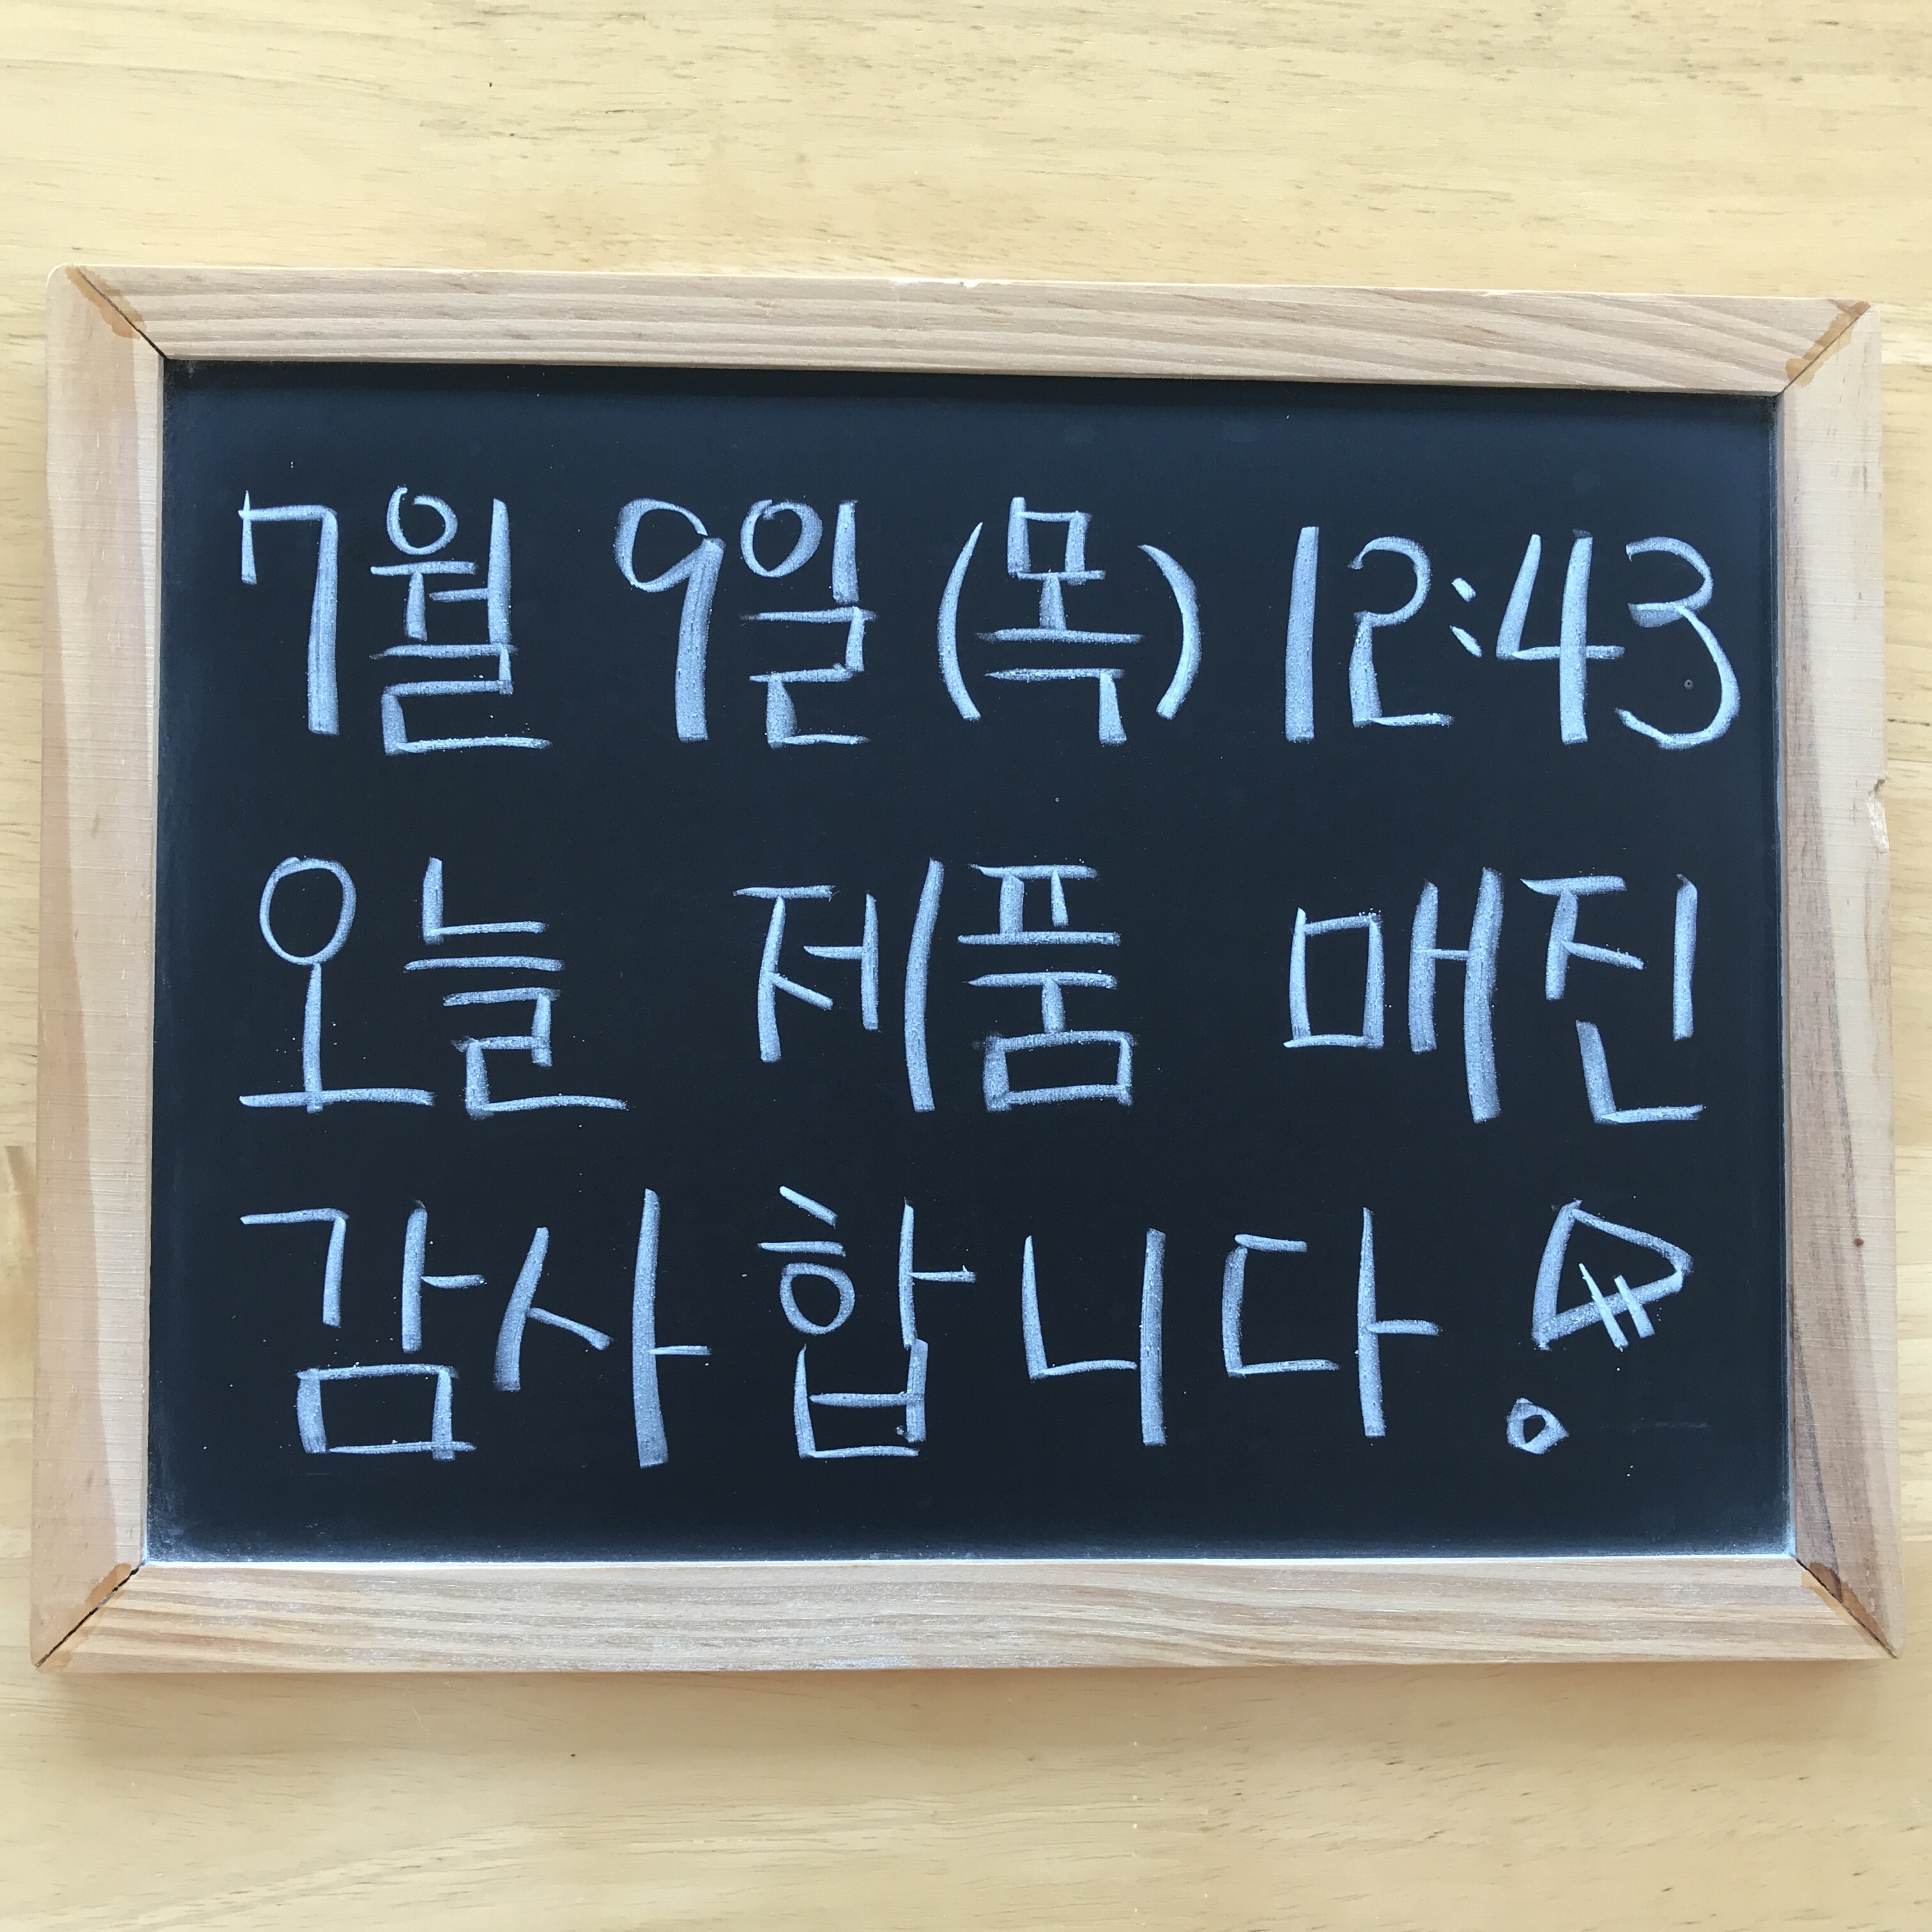 7월 9일(목) 12:43
오늘 제품 매진
감사합니다!